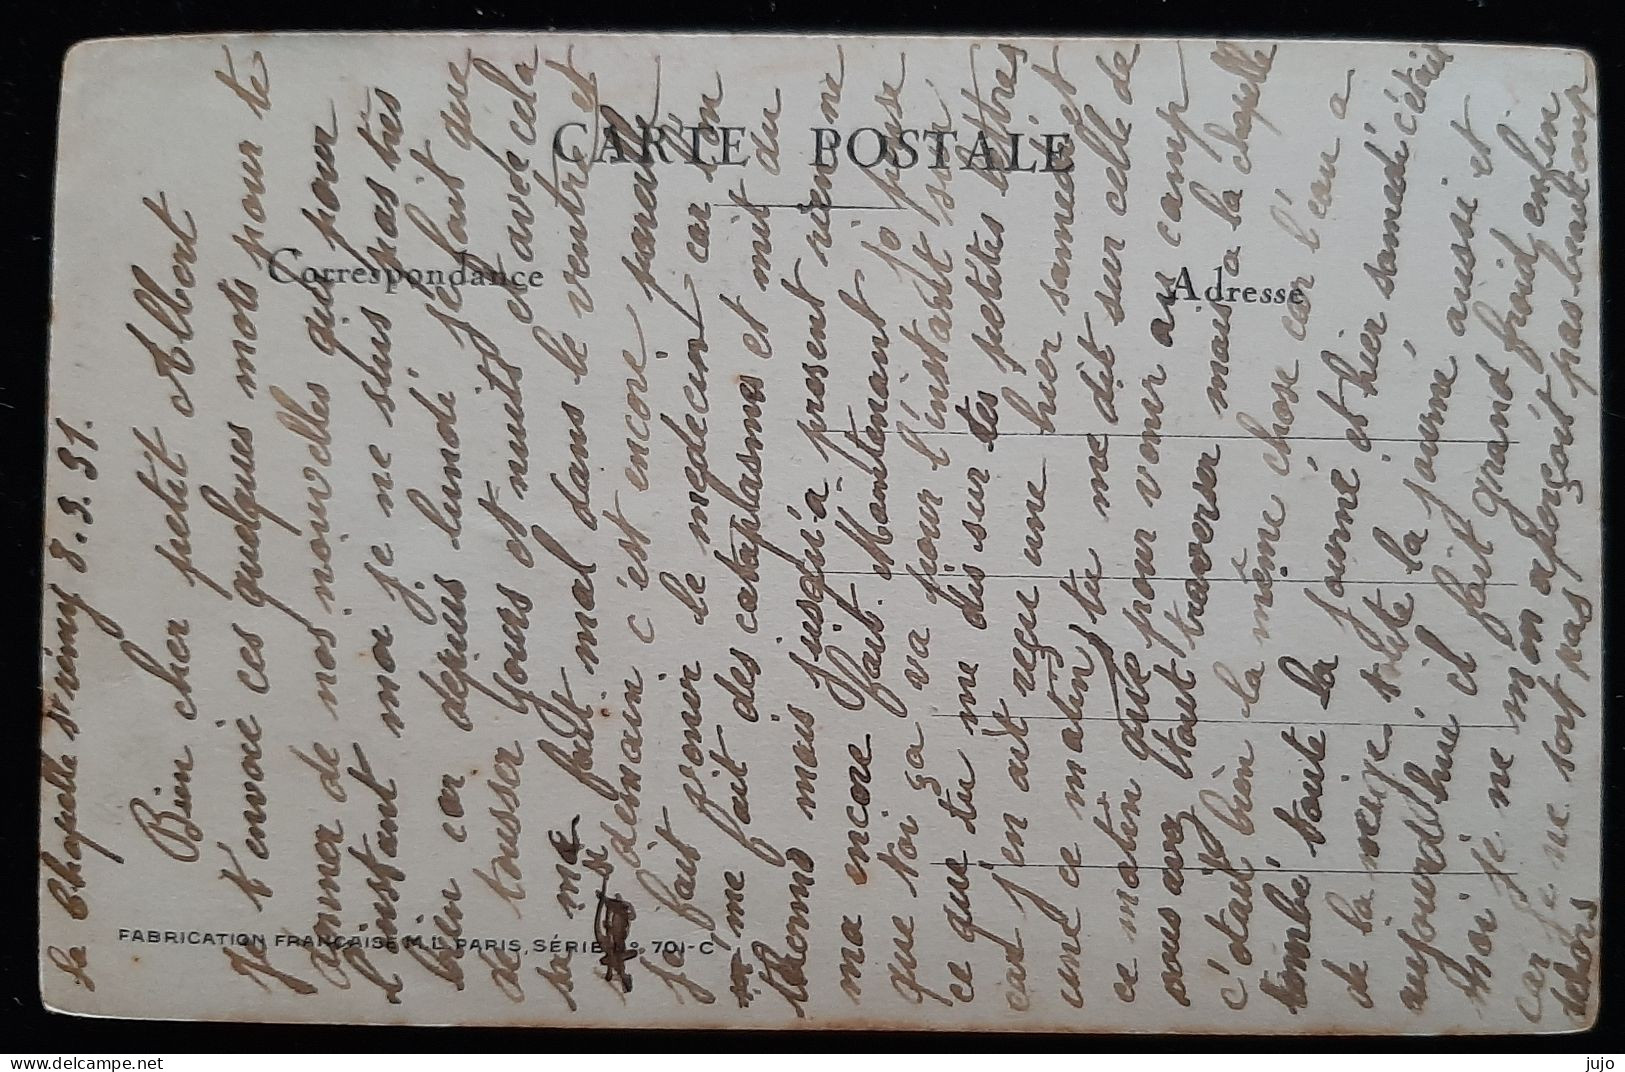 CARTE POSTALE
Correspondance
Adresse
FABRICATION FRANÇAISE M.L. PARIS, SÉRIE No 701-C
la Chapelle St rémy 8.3.31.
Bien cher petit Albert
Je t'envoie ces quelques mots pour te
donner de nos nouvelles qui pour
l'instant moi je ne suis pas très
bien car depuis lundi je fait que
de tousser jours et nuits et avec cela
sa me fait mal dans le ventre et
demain c'est encore pareil
fait venir le medecin car on
me fait des cataplasmes et mit du
thermo mais jusqu'à present rien ne
ma encore fait. Maintenant je pense
que toi ça va pour l'instant selon
ce que tu me dis sur tes petites lettres
car j'en ait reçu une hier samedi et
une ce matin, tu me dit sur celle de
ce matin que pour venir au camp
vous avez traverser mais a la chapelle
c'était bien la même chose car l'eau a
tombé toute la journé et hier samedi c'était
de la neige toute la journé aussi et
aujourd'hui il fait grand froid enfin
moi je ne m'en aperçoit pas beaucoup
car je ne sort pas
dehors
jujo